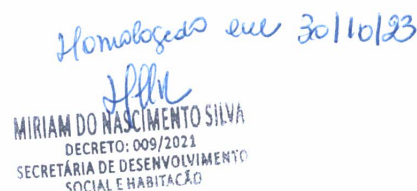 Homologado em 30/10/23
MIRIAM DO NASCIMENTO SILVA
DECRETO: 009/2021
SECRETÁRIA DE DESENVOLVIMENTO
SOCIAL E HABITAÇÃO